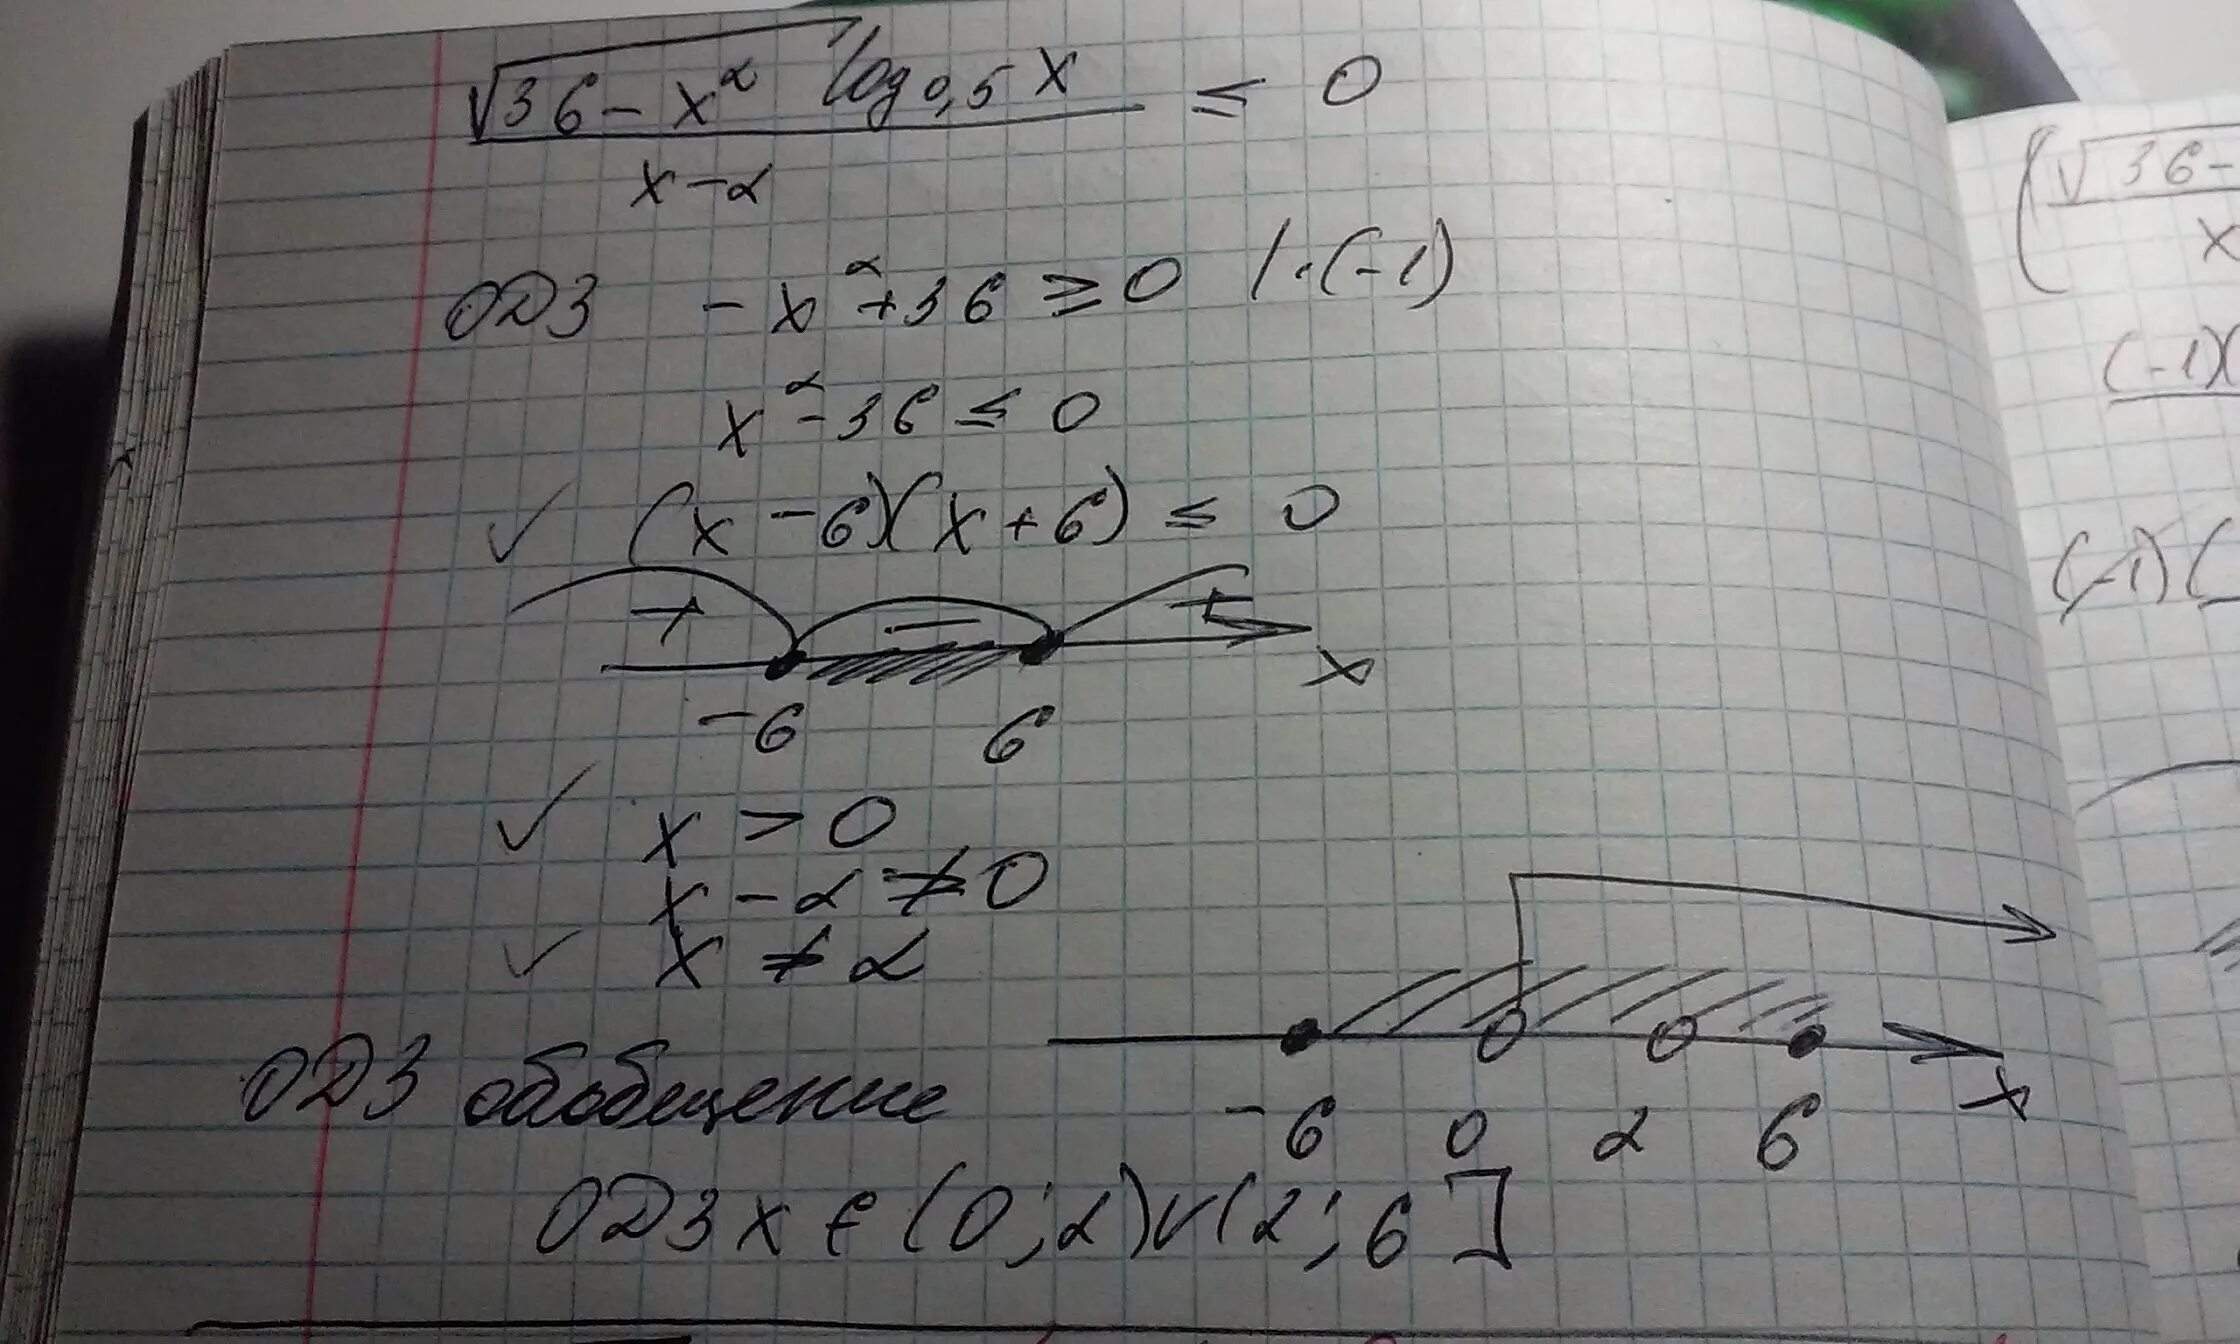 √36-x² log₀,₅x ≤ 0
x-2
ОДЗ -x²+36 ≥ 0 /·(-1)
x²-36 ≤ 0
✓ (x-6)(x+6) ≤ 0
+ - +
-6 6 x
✓ x > 0
x-2 ≠ 0
✓ x ≠ 2
ОДЗ обобщение
-6 0 2 6 x
ОДЗ x ∈ (0;2)∪(2;6]
(√36-
x
(-1)(
(-1)(